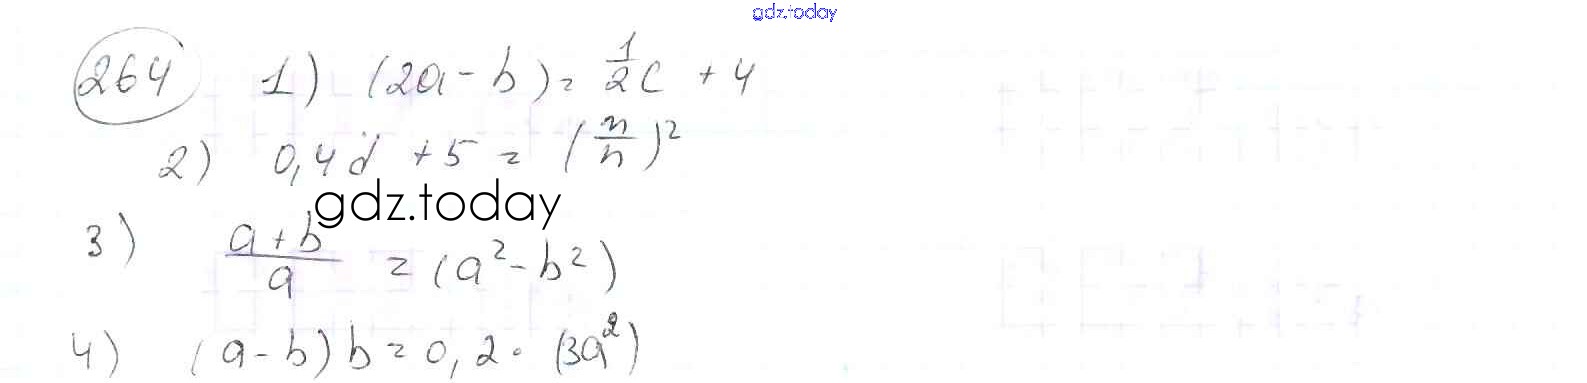 gdz.today
264 1) (2a - b) = 1/2 c + 4
2) 0,4d + 5 = (m/n)²
gdz.today
3) a + b / a = (a² - b²)
4) (a - b) b = 0,2 · (3a²)